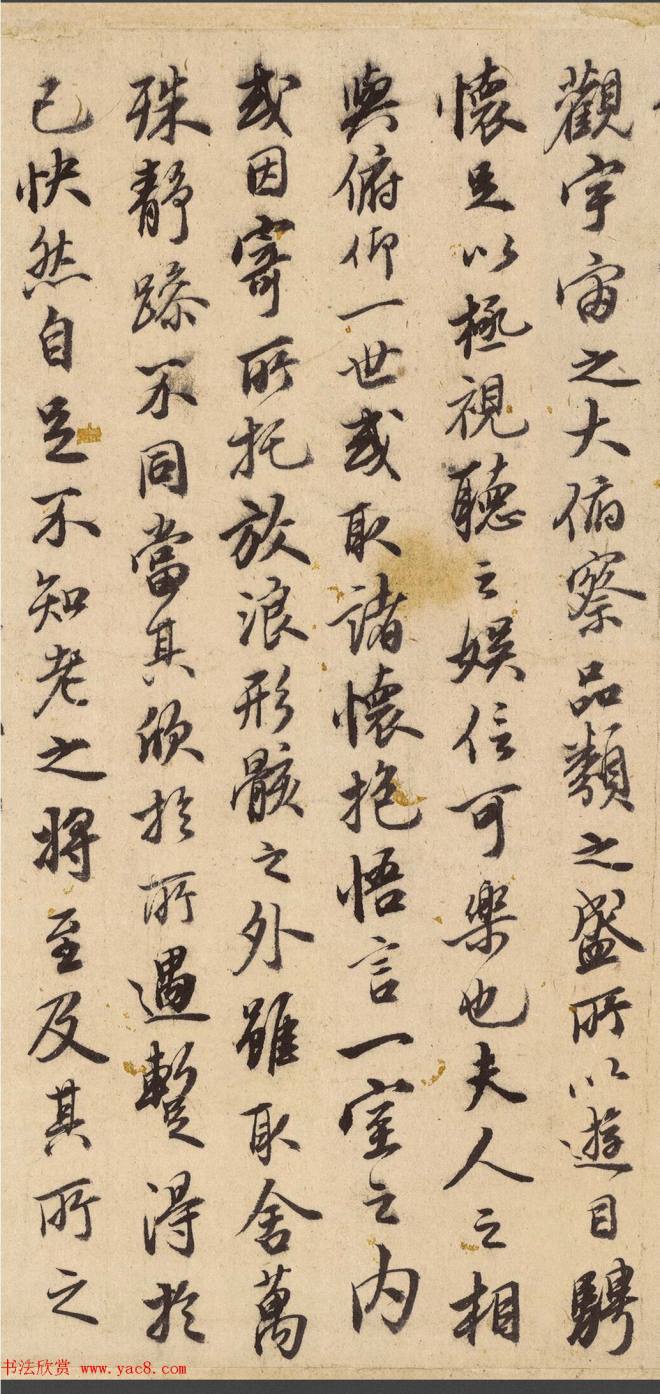 觀宇宙之大俯察品類之盛所以遊目騁
懷足以極視聽之娛信可樂也夫人之相
與俯仰一世或取諸懷抱悟言一室之內
或因寄所托放浪形骸之外雖取舍萬
殊靜躁不同當其欣於所遇蹔得於
己快然自足不知老之將至及其所之
书法欣赏 www.yac8.com